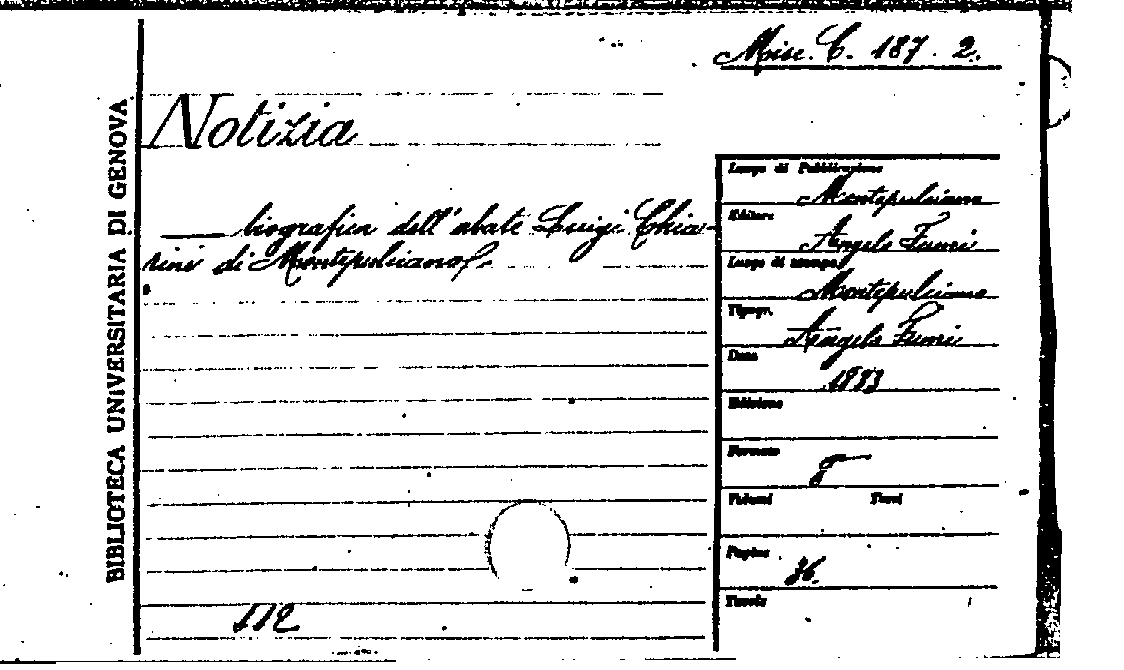 Misc. C. 187. 2.
BIBLIOTECA UNIVERSITARIA DI GENOVA
Notizia
—— biografica dell'abate Luigi Chia-
rini di Montepulciano.
112
Luogo di Pubblicazione
Montepulciano
Editore
Angelo Fumi
Luogo di stampa
Montepulciano
Tipogr.
Angelo Fumi
Data
Edizione
Formato
8°
Volumi Tomi
Pagine
Tavole